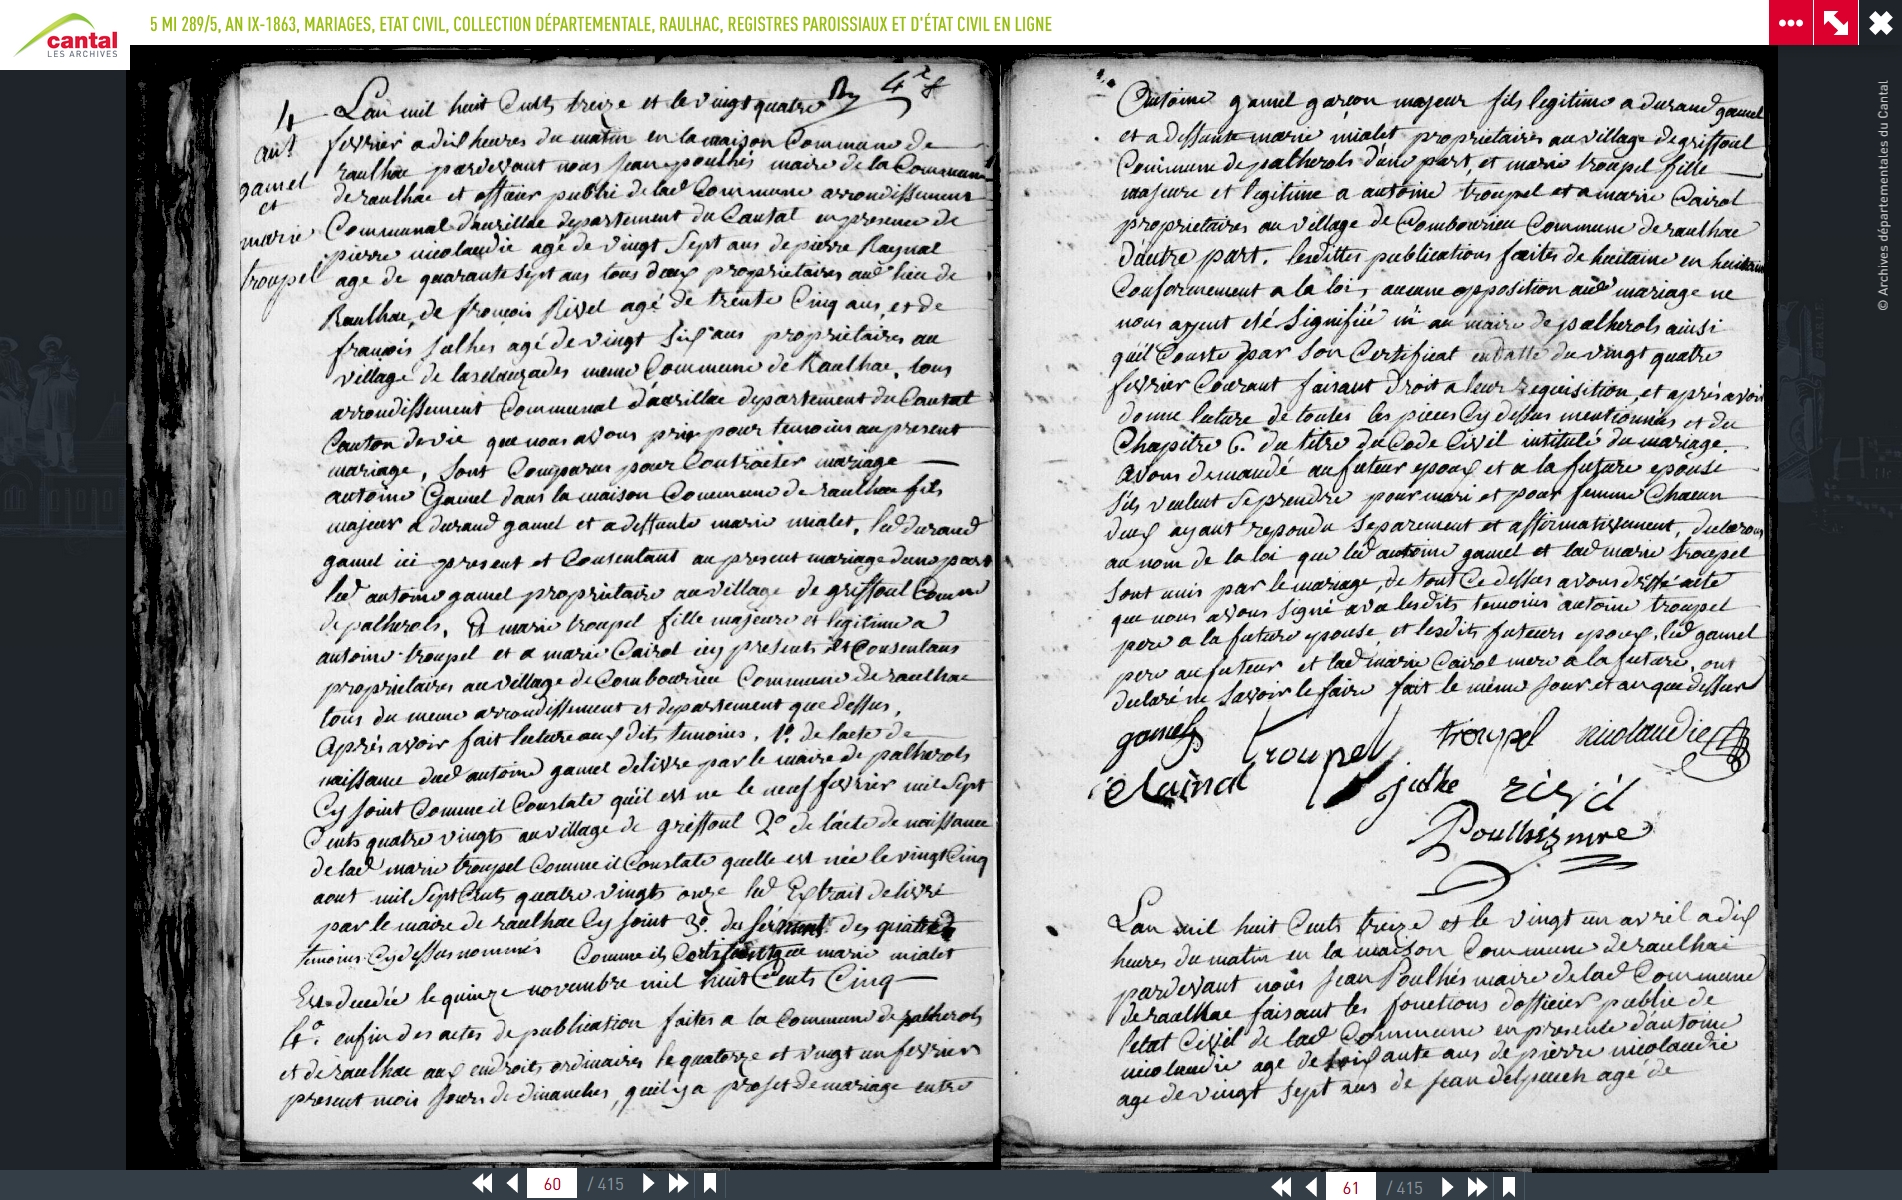 cantal
LES ARCHIVES
5 MI 289/5, AN IX-1863, MARIAGES, ETAT CIVIL, COLLECTION DÉPARTEMENTALE, RAULHAC, REGISTRES PAROISSIAUX ET D'ÉTAT CIVIL EN LIGNE
© Archives départementales du Cantal
4
ant
gamel
et
marie
troupel
Lan mil huit Cents treize et le vingt quatre
fevrier a dix heures du matin en la maison Commune de
raulhac pardevant nous jean poulhés maire de la Commune
de raulhac et officier public de lad Commune arrondissement
Communal daurillac departement du Cantal en presence de
pierre nicolaudie agé de vingt sept ans de pierre Raynal
age de quarante sept ans tous deux proprietaires aud lieu de
Raulhac, de françois Rivel agé de trente Cinq ans, et de
françois julhes agé de vingt six ans proprietaires au
village de meme Commune de Raulhac, tous
arrondissement Communal d'aurillac departement du Cantal
Canton de vic que nous avons pris pour temoins au present
mariage, sont Comparus pour Contracter mariage
antoine Gamel dans la maison Commune de raulhac fils
majeur a durand gamel et a deffunte marie mialet, led durand
gamel ici present et Consentant au present mariage dune part
led antoine gamel proprietaire au village de griffoul Comune
de palherols, Et marie troupel fille majeure et legitime a
antoine troupel et a marie Cairol icy presents et Consentans
proprietaires au village de Combourieu Commune de raulhac
tous du meme arrondissement et departement que dessus,
Aprés avoir fait lecture aux dits temoins, 1º. de lacte de
naissance dud antoine gamel delivré par le maire de palherols
Cy joint Comme il Constate qu'il est ne le neuf fevrier mil sept
Cents quatre vingts au village de griffoul 2º de l'acte de naissance
de lad marie troupel Comme il Constate quelle est née le vingt Cinq
aout mil sept Cents quatre vingts onze led Extrait delivré
par le maire de raulhac Cy joint 3º. du serment des quatre
temoins Cy dessus nommés Comme ils que marie mialet
Est decedée le quinze novembre mil huit Cents Cinq
4º. enfin des actes de publication faites a la Commune de palherols
et de raulhac aux endroits ordinaires le quatorze et vingt un fevrier
present mois jours de dimanches, qu'il y a projet de mariage entre
Antoine gamel garçon majeur fils legitime a durand gamel
et a deffunte marie mialet proprietaires au village de griffoul
Commune de palherols d'une part, et marie troupel fille
majeure et legitime a antoine troupel et a marie Cairol
proprietaires au village de Combourieu Commune de raulhac
d'autre part. lesdittes publications faites de huitaine en huitaine
Conformement a la loi, aucune opposition aud mariage ne
nous ayent eté signifiée ni au maire de palherols ainsi
quil Conste par son Certificat en datte du vingt quatre
fevrier Courant faisant droit a leur requisition, et aprés avoir
donné lecture de toutes les pieces Cy dessus mentionnées et du
Chapitre 6. du titre du Code Civil intitulé du mariage.
Avons demandé au futeur epoux et a la future epouse
s'ils veulent se prendre pour mari et pour femme Chacun
deux ayant repondu separement et affirmativement, declarons
au nom de la loi que led antoine gamel et lad marie troupel
sont unis par le mariage, de tout Ce dessus avons acte
que nous avons signé avec lesdits temoins antoine troupel
pere a la future epouse, et lesdits futeurs epoux, led gamel
pere au futeur et lad marie Cairol mere a la future, ont
declaré ne savoir le faire fait le même jour et an que dessus
gamel troupel troupel nicolaudie
Rainal julhe rivel
Poulhés mre
Lan mil huit Cents treize et le vingt un avril a dix
heures du matin en la maison Commune de raulhac
pardevant nous jean Poulhés maire de lad Commune
de raulhac faisant les fonctions d'officier public de
l'etat Civil de lad Commune en presence d'antoine
nicolaudie age de soixante ans de pierre nicolaudie
age de vingt sept ans de jean delpuech age de
60 / 415
61 / 415